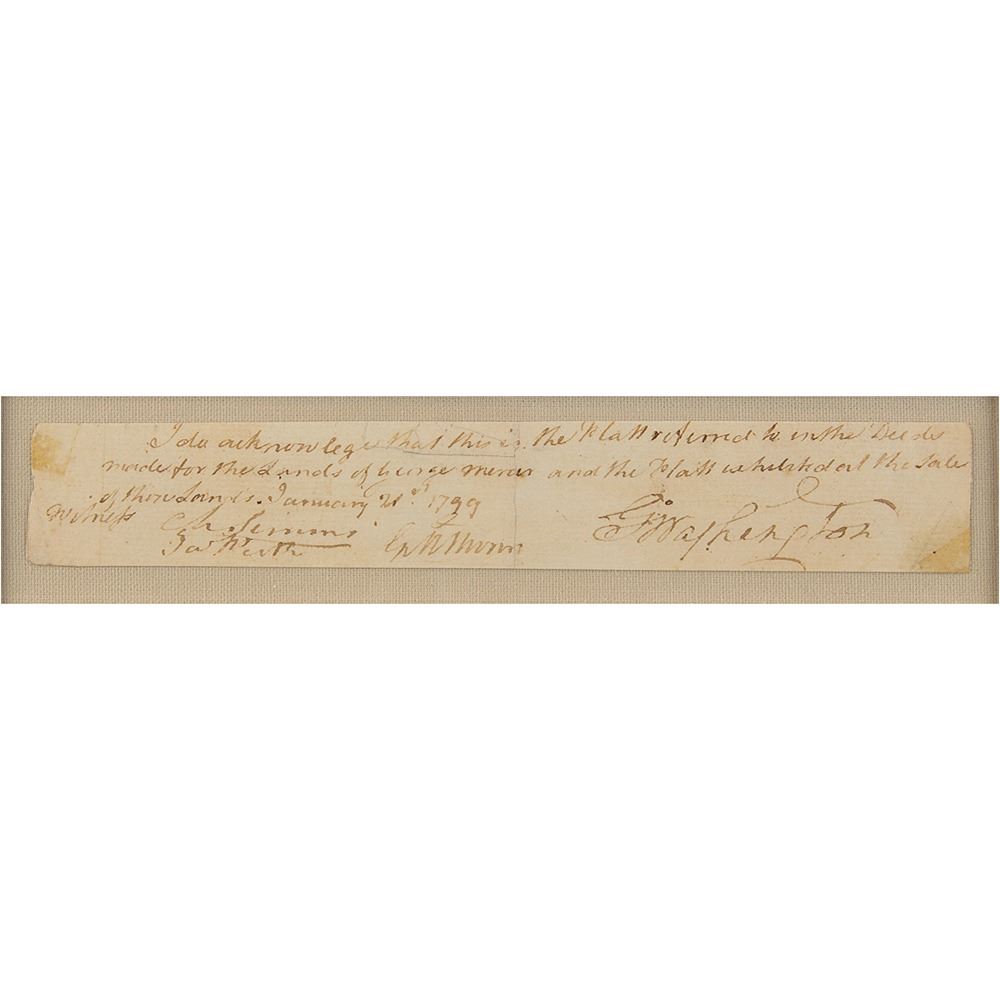 I do acknowlege that this is the Platt referred to in the Deeds
made for the Lands of George mercer and the Platt exhibited at the Sale
of those Lands. January 21st 1799
Witness
Ch Simms
G:Washington